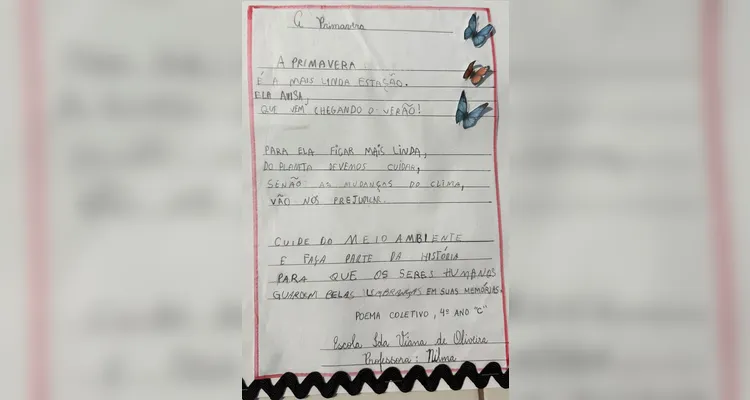 A Primavera
A PRIMAVERA
É A MAIS LINDA ESTAÇÃO.
ELA AVISA,
QUE VEM CHEGANDO O VERÃO!
PARA ELA FICAR MAIS LINDA,
DO PLANETA DEVEMOS CUIDAR,
SENÃO AS MUDANÇAS DO CLIMA,
VÃO NOS PREJUDICAR.
CUIDE DO MEIO AMBIENTE
E FAÇA PARTE DA HISTÓRIA
PARA QUE OS SERES HUMANOS
GUARDEM BELAS LEMBRANÇAS EM SUAS MEMÓRIAS.
POEMA COLETIVO, 4º ANO "C"
Escola Ida Viana de Oliveira
Professora: Nilma